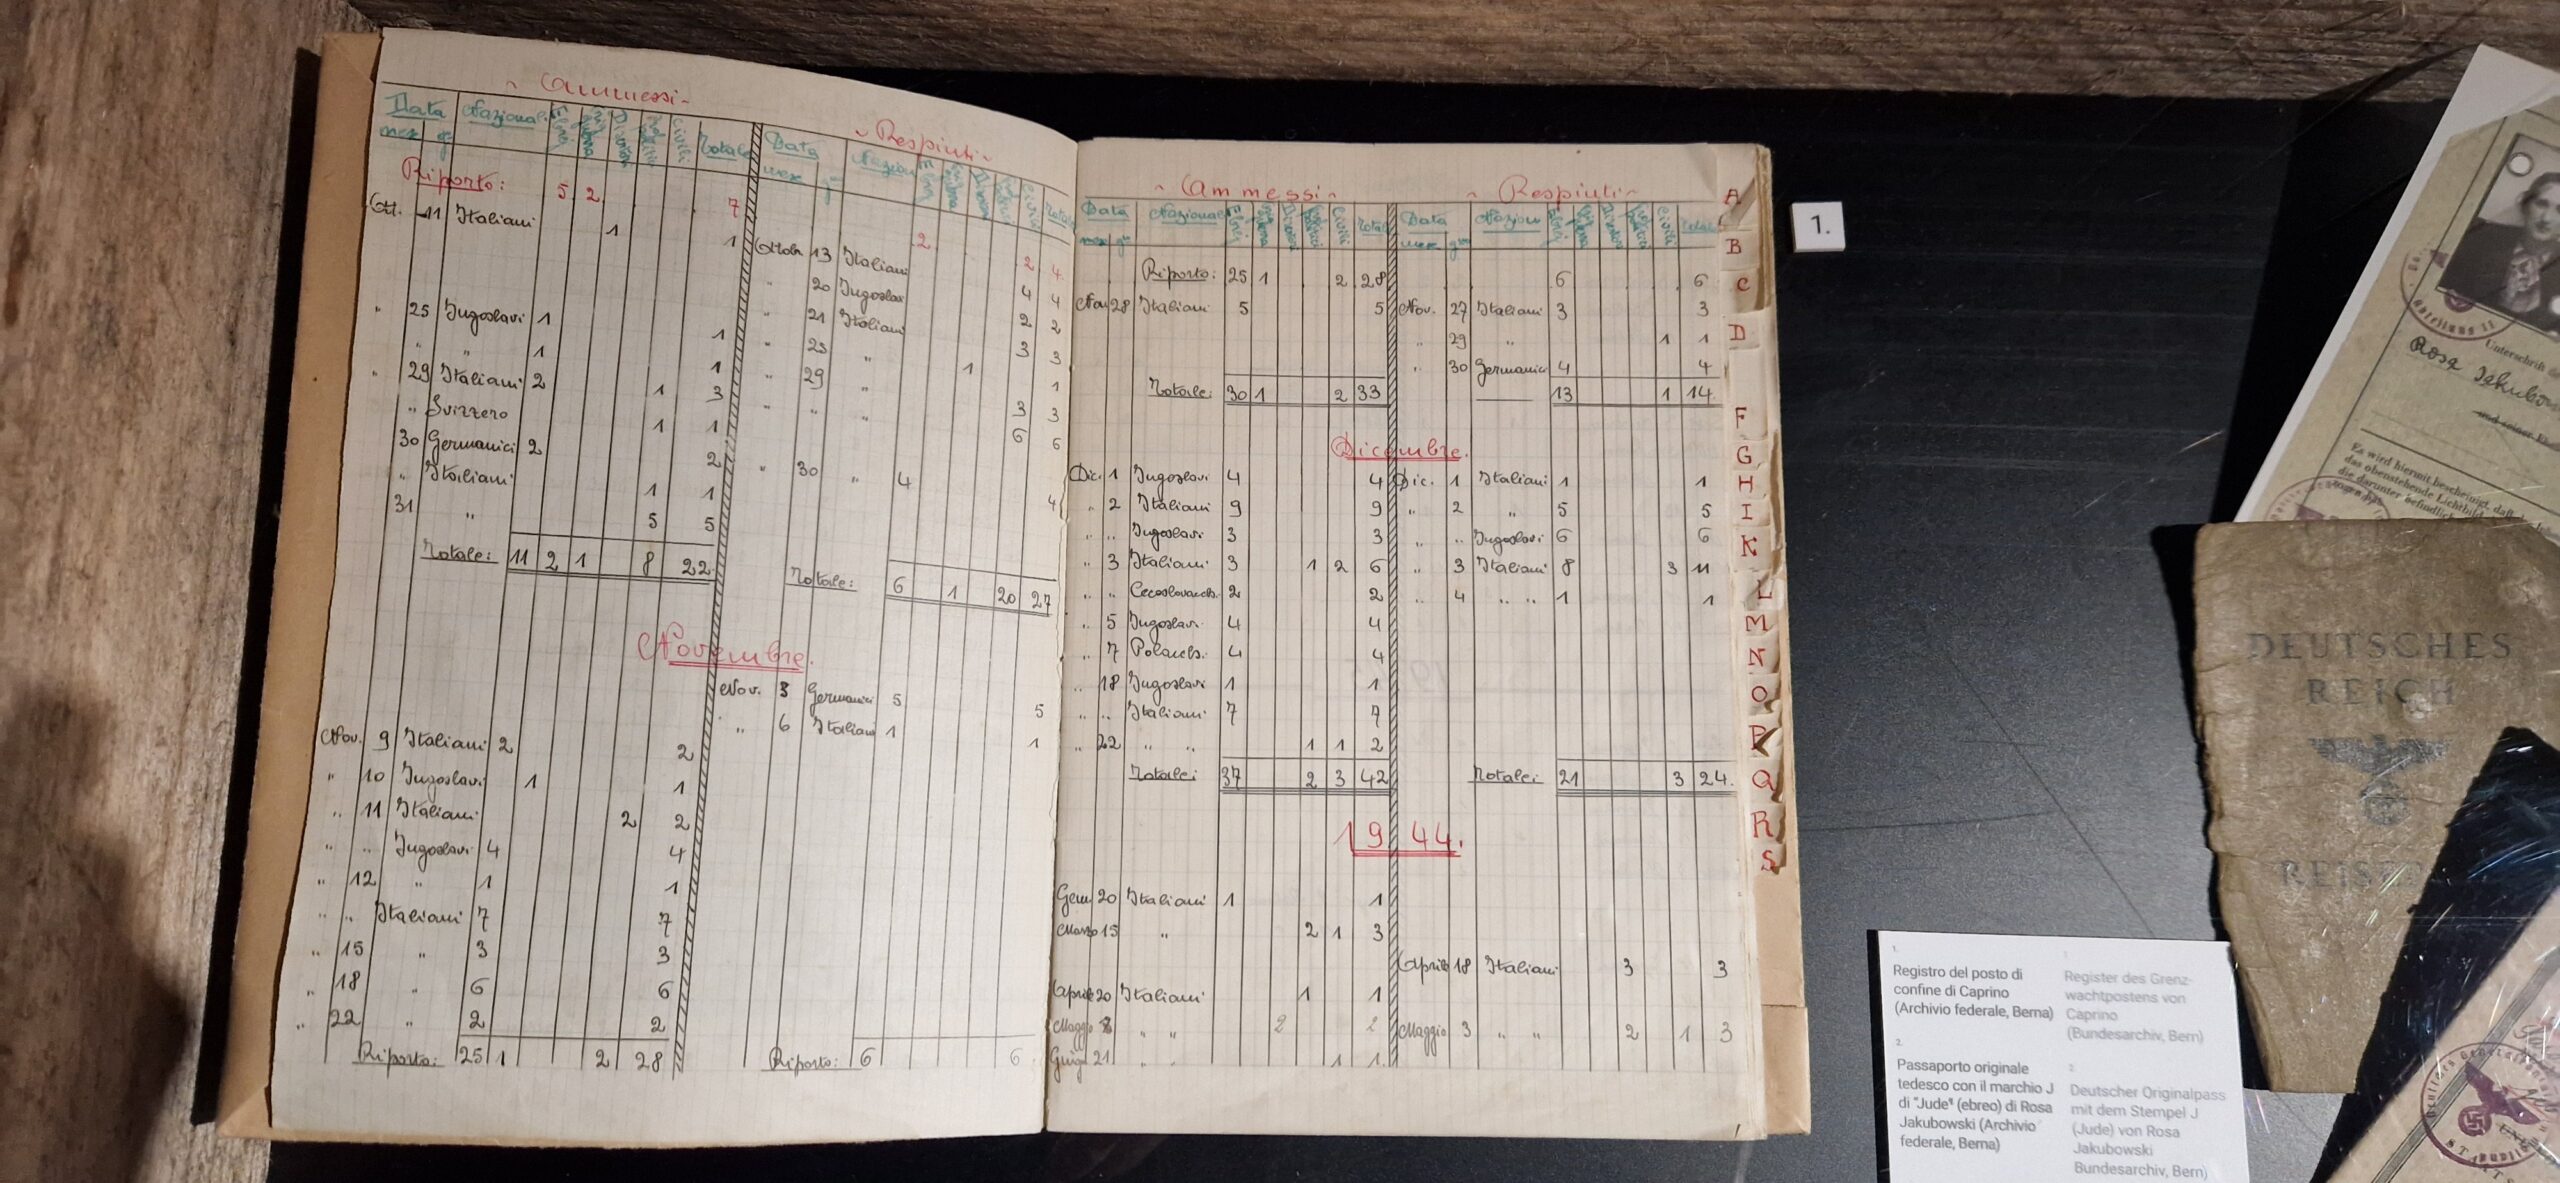 ~ Ammessi ~
~ Respinti ~
Data Nazional. Totale
mese g.
Data Nazion Civili Totale
mese g.
Riporto: 5 2 7
2 2 4
Ott. 11 Italiani 1 1
Ottobr. 13 Italiani 4 4
" 20 Jugoslavi 2 2
" 25 Jugoslavi 1 1
" 21 Italiani 3 3
" " 1 1
" 23 " 1 1
" 29 Italiani 2 1 3
" 29 " 3 3
" Svizzero 1 1
" " " 6 6
30 Germanici 2 2
" 30 " 4 4
" Italiani 1 1
31 " 5 5
Totale: 11 2 1 8 22
Totale: 6 1 20 27
Novembre.
Nov. 3 Germanici 5 5
" 6 Italiani 1 1
Nov. 9 Italiani 2 2
" 10 Jugoslavi 1 1
" 11 Italiani 2 2
" " Jugoslavi 4 4
" 12 " 1 1
" " Italiani 7 7
" 15 " 3 3
" 18 " 6 6
" 22 " 2 2
Riporto: 25 1 2 28
Riporto: 6 6
~ Ammessi ~
~ Respinti ~
Data Nazional Civili Total
mese g.
Data Nazion Civili Totale
mese g.
Riporto: 25 1 2 28
6 6
Nov 28 Italiani 5 5
Nov. 27 Italiani 3 3
" 29 " 1 1
" 30 Germanici 4 4
Totale: 30 1 2 33
13 1 14
Dicembre.
Dic. 1 Jugoslavi 4 4
Dic. 1 Italiani 1 1
" 2 Italiani 9 9
" 2 " 5 5
" " Jugoslavi 3 3
" " Jugoslavi 6 6
" 3 Italiani 3 1 2 6
" 3 Italiani 8 3 11
" " Cecoslovacch. 2 2
" 4 " " 1 1
" 5 Jugoslavi 4 4
" 7 Polacch. 4 4
" 18 Jugoslavi 1 1
" " Italiani 7 7
" 22 " " 1 1 2
Totale: 37 2 3 42
Totale: 21 3 24.
1944.
Genn 20 Italiani 1 1
Marzo 15 " 2 1 3
Aprile 18 Italiani 3 3
Aprile 20 Italiani 1 1
Maggio 8 " " 2 2
Maggio 3 " " 2 1 3
Giug 21 " " 1 1
A
B
C
D
F
G
H
I
K
L
M
N
O
P
Q
R
S
1.
1.
Registro del posto di
confine di Caprino
(Archivio federale, Berna)
2.
Passaporto originale
tedesco con il marchio J
di "Jude" (ebreo) di Rosa
Jakubowski (Archivio
federale, Berna)
1
Register des Grenz-
wachtpostens von
Caprino
(Bundesarchiv, Bern)
2
Deutscher Originalpass
mit dem Stempel J
(Jude) von Rosa
Jakubowski
Bundesarchiv, Bern)
Unterschrift
Rosa
und seiner
Es wird hiermit bescheinigt, daß
das obenstehende Lichtbild
die darunter befindlich
DEUTSCHES
REICH